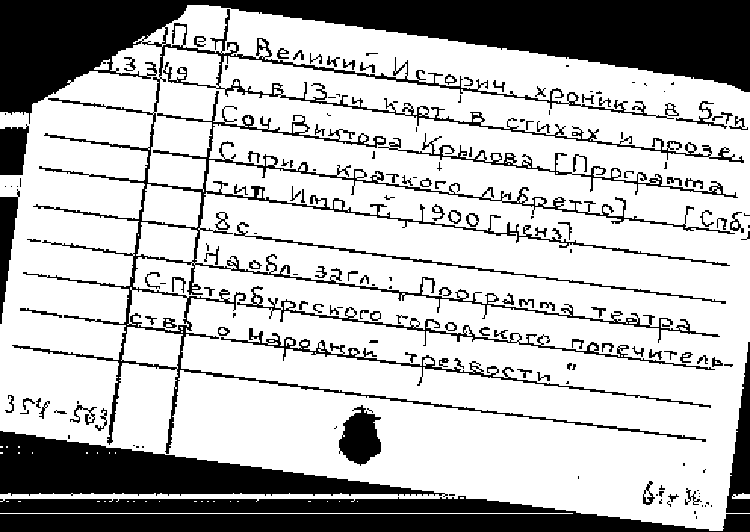 Петр Великий. Историч. хроника в 5-ти
д., в 13-ти карт. в стихах и прозе.
Соч. Виктора Крылова. [Программа.
С прил. краткого либретто]. [Спб.,
тип. Имп. т., 1900 [ценз].
8 с.
На обл. загл.: „Программа театра
С-Петербургского городского попечитель-
ства о народной трезвости"
354-563